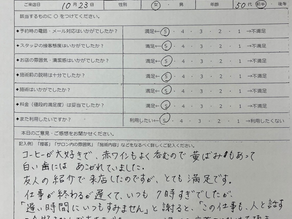 ご来店日 10月23日 性別 女 年齢 50代
該当するものに○をつけてください。
◆予約時の電話・メール対応はいかがでしたか? 満足← 5・4・3・2・1→不満足
◆スタッフの接客態度はいかがでしたか? 満足← 5・4・3・2・1→不満足
◆お店の雰囲気・清潔感はいかがでしたか? 満足← 5・4・3・2・1→不満足
◆技術前の説明は十分でしたか? 満足← 5・4・3・2・1→不満足
◆技術はいかがでしたか? 満足← 5・4・3・2・1→不満足
◆料金(値段的満足度)はいかがでしたか? 満足← 5・4・3・2・1→不満足
◆また利用したいですか? 利用したい← 5・4・3・2・1→利用したくない
本日のご意見・ご感想をお聞かせください。
コーヒーが大好きで、赤ワインもよく飲むので黄ばみもあって
白い歯には あこがれていました。
友人の紹介で来店したのですが、とても満足です。
仕事が終わるが遅くて、いつも7時すぎでしたが
「遅い時間にいつもすみません」と謝ると、「この仕事も、人と話す